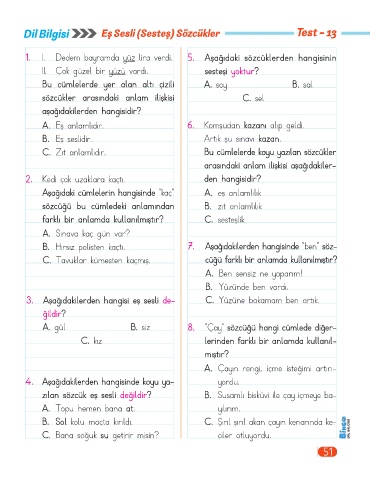 Dil Bilgisi Eş Sesli (Sesteş) Sözcükler Test - 13
1. I. Dedem bayramda yüz lira verdi.
II. Çok güzel bir yüzü vardı.
Bu cümlelerde yer alan altı çizili
sözcükler arasındaki anlam ilişkisi
aşağıdakilerden hangisidir?
A. Eş anlamlıdır.
B. Eş seslidir.
C. Zıt anlamlıdır.
2. Kedi çok uzaklara kaçtı.
Aşağıdaki cümlelerin hangisinde "kaç"
sözcüğü bu cümledeki anlamından
farklı bir anlamda kullanılmıştır?
A. Sınava kaç gün var?
B. Hırsız polisten kaçtı.
C. Tavuklar kümesten kaçmış.
3. Aşağıdakilerden hangisi eş sesli de-
ğildir?
A. gül B. siz
C. kız
4. Aşağıdakilerden hangisinde koyu ya-
zılan sözcük eş sesli değildir?
A. Topu hemen bana at.
B. Sol kolu maçta kırıldı.
C. Bana soğuk su getirir misin?
5. Aşağıdaki sözcüklerden hangisinin
sesteşi yoktur?
A. soy B. sal
C. sel
6. Komşudan kazanı alıp geldi.
Artık şu sınavı kazan.
Bu cümlelerde koyu yazılan sözcükler
arasındaki anlam ilişkisi aşağıdakiler-
den hangisidir?
A. eş anlamlılık
B. zıt anlamlılık
C. sesteşlik
7. Aşağıdakilerden hangisinde "ben" söz-
cüğü farklı bir anlamda kullanılmıştır?
A. Ben sensiz ne yaparım!
B. Yüzünde ben vardı.
C. Yüzüne bakamam ben artık.
8. "Çay" sözcüğü hangi cümlede diğer-
lerinden farklı bir anlamda kullanıl-
mıştır?
A. Çayın rengi, içme isteğimi artırı-
yordu.
B. Susamlı bisküvi ile çay içmeye ba-
yılırım.
C. Şırıl şırıl akan çayın kenarında ke-
çiler otluyordu.
51